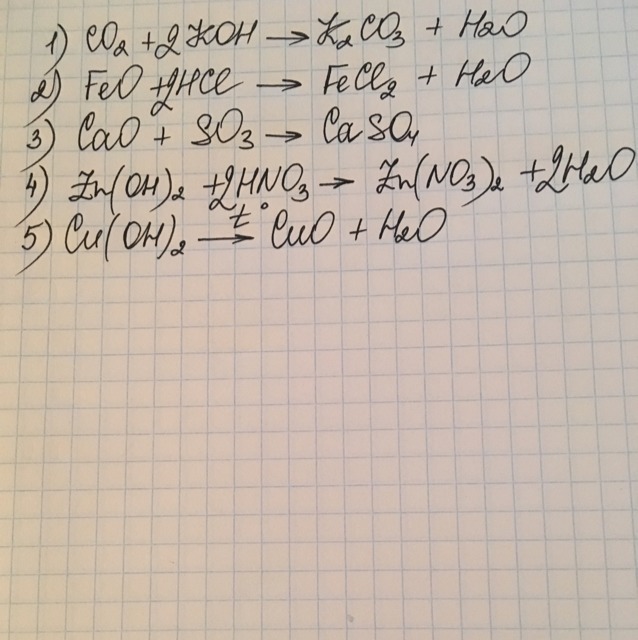 1) CO₂ + 2KOH → K₂CO₃ + H₂O
2) FeO + 2HCl → FeCl₂ + H₂O
3) CaO + SO₃ → CaSO₄
4) Zn(OH)₂ + 2HNO₃ → Zn(NO₃)₂ + 2H₂O
5) Cu(OH)₂ t° → CuO + H₂O